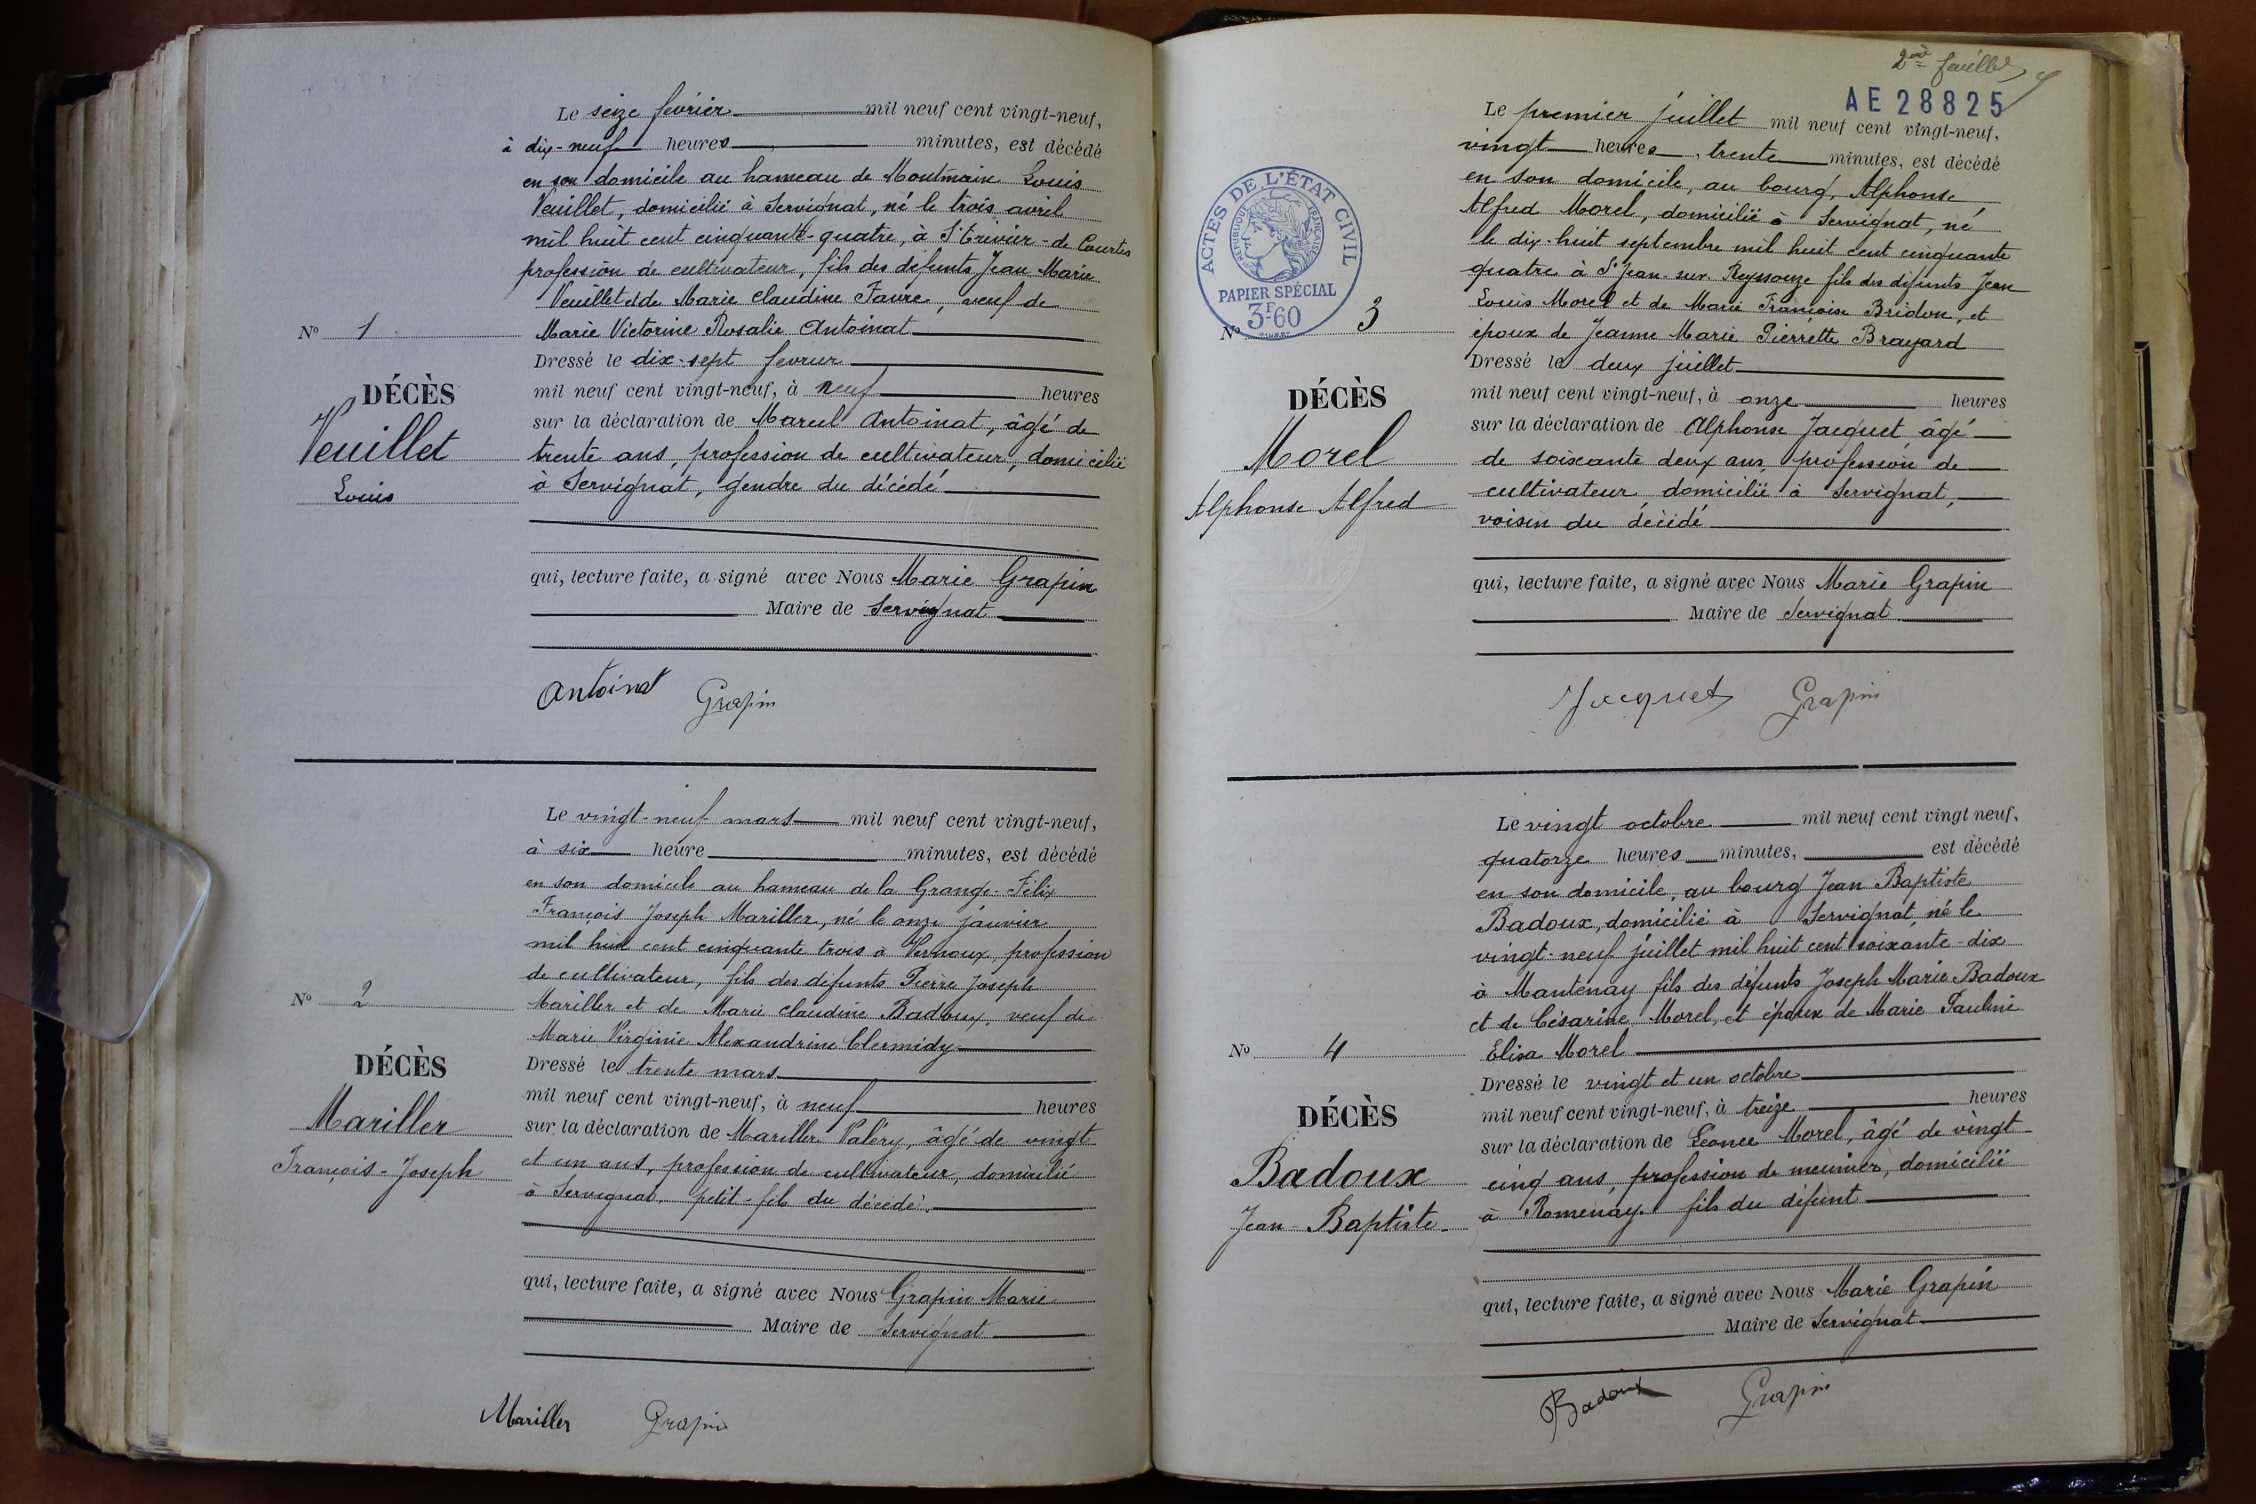 Le seize février mil neuf cent vingt-neuf,
à dix-neuf heures minutes, est décédé
en son domicile au hameau de Montmain Louis
Veuillet, domicilié à Servignat, né le trois avril
mil huit cent cinquante-quatre, à St Trivier-de Courtes
profession de cultivateur, fils des défunts Jean Marie
Veuillet et de Marie Claudine Favre, veuf de
No 1 Marie Victorine Rosalie Antoinat
Dressé le dix-sept fevrier
mil neuf cent vingt-neuf, à neuf heures
DÉCÈS
sur la déclaration de Marcel Antoinat, âgé de
Veuillet
trente ans, profession de cultivateur, domicilié
Louis
à Servignat, gendre du décédé
qui, lecture faite, a signé avec Nous Marie Grapin
Maire de Servignat
Antoinat Grapin
Le vingt-neuf mars mil neuf cent vingt-neuf,
à six heure minutes, est décédé
en son domicile au hameau de la Grange-Félix
François Joseph Mariller, né le onze janvier
mil huit cent cinquante trois à Vernoux, profession
de cultivateur, fils des défunts Pierre Joseph
No 2 Mariller et de Marie Claudine Badoux, veuf de
Marie Virginie Alexandrine Clermidy
DÉCÈS
Dressé le trente mars
mil neuf cent vingt-neuf, à neuf heures
Mariller
sur la déclaration de Mariller Valéry, âgé de vingt
François-Joseph
et un ans, profession de cultivateur, domicilié
à Servignat, petit-fils du décédé.
qui, lecture faite, a signé avec Nous Grapin Marie
Maire de Servignat
Mariller Grapin
2me feuillet
AE 28825
Le premier juillet mil neuf cent vingt-neuf,
vingt heures, trente minutes, est décédé
en son domicile, au bourg, Alphonse
Alfred Morel, domicilié à Servignat, né
le dix-huit septembre mil huit cent cinquante
quatre à St Jean-sur-Reyssouze fils des défunts Jean
Louis Morel et de Marie Françoise Bridon, et
ACTES DE L'ÉTAT CIVIL
RÉPUBLIQUE FRANÇAISE
PAPIER SPÉCIAL
3F60
No 3 époux de Jeanne Marie Pierrette Brayard
Dressé le deux juillet
mil neuf cent vingt-neuf, à onze heures
DÉCÈS
sur la déclaration de Alphonse Jacquet âgé
Morel
de soixante deux ans, profession de
cultivateur domicilié à Servignat,
Alphonse Alfred
voisin du décédé
qui, lecture faite, a signé avec Nous Marie Grapin
Maire de Servignat
Jacquet Grapin
Le vingt octobre mil neuf cent vingt neuf,
quatorze heures minutes, est décédé
en son domicile, au bourg Jean Baptiste
Badoux, domicilié à Servignat, né le
vingt-neuf juillet mil huit cent soixante-dix
à Mantenay fils des défunts Joseph Marie Badoux
et de Césarine Morel, et époux de Marie Pauline
No 4 Elisa Morel
Dressé le vingt et un octobre
DÉCÈS
mil neuf cent vingt-neuf, à treize heures
sur la déclaration de Léonce Morel, âgé de vingt-
Badoux
cinq ans, profession de meunier, domicilié
Jean-Baptiste
à Romenay. fils du défunt
qui, lecture faite, a signé avec Nous Marie Grapin
Maire de Servignat
Badoux Grapin